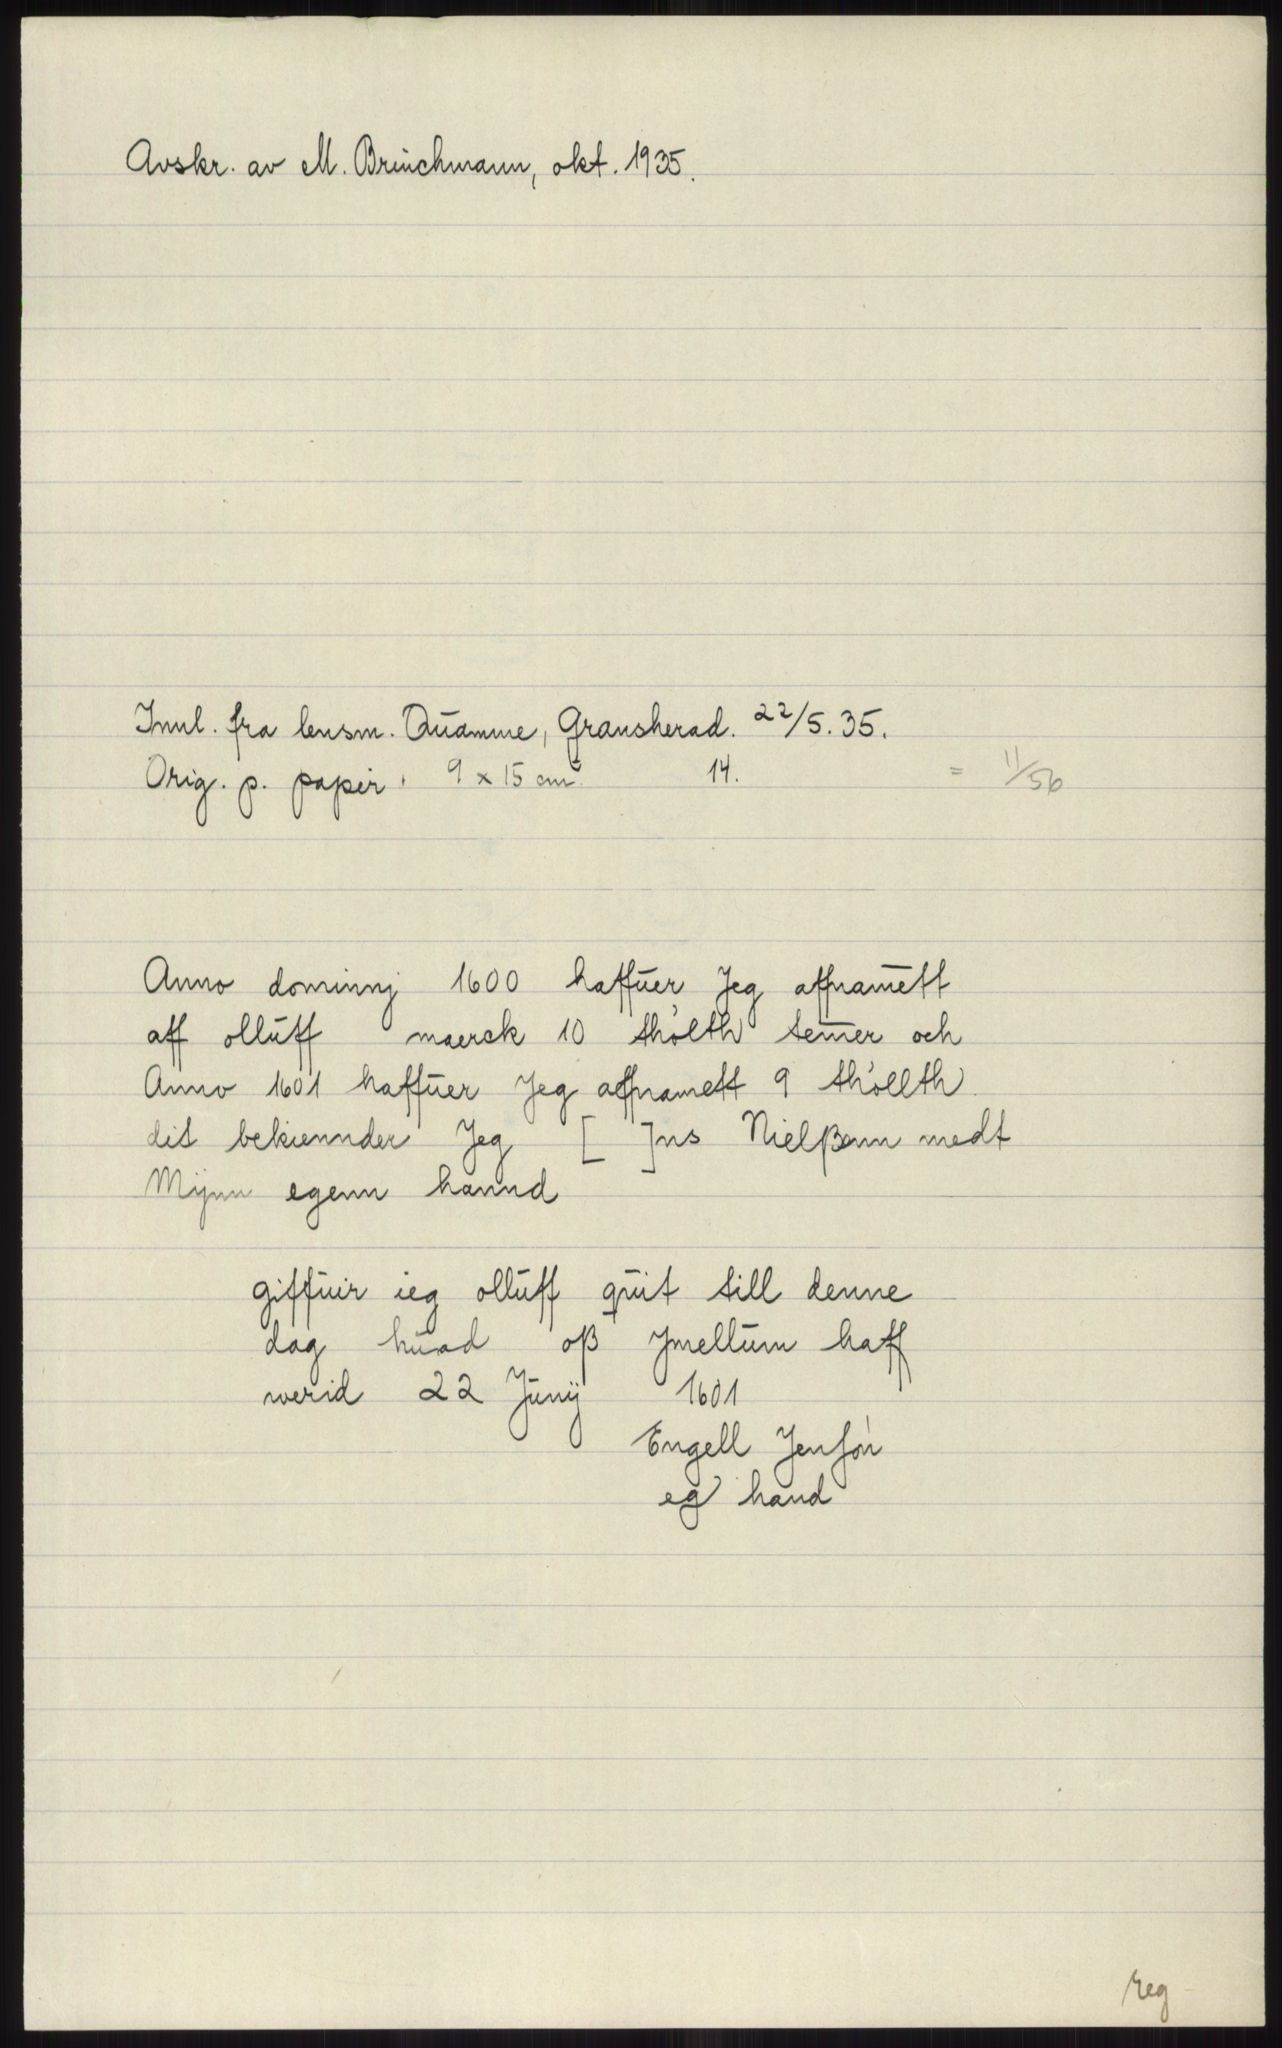 Avskr. av M. Brinchmann, okt. 1935.
Innl. fra lensm. Quamme, Gransherad. 22/5. 35.
Orig. p. papir. 9 x 15 cm². 14. = 11/56
Anno dominnj 1600 haffuer Jeg affnamett
aff olluff maerck 10 thölth temer och
Anno 1601 haffuer Jeg affnamett 9 thöllth
dit bekiennder Jeg [ ]ns Nielßenn medt
Mÿnn egenn hannd
giffuir ieg olluff quit till denne
dag huad oß ymellum haff
werid 22 Junÿ 1601
Engell Jensön
eg hand
reg